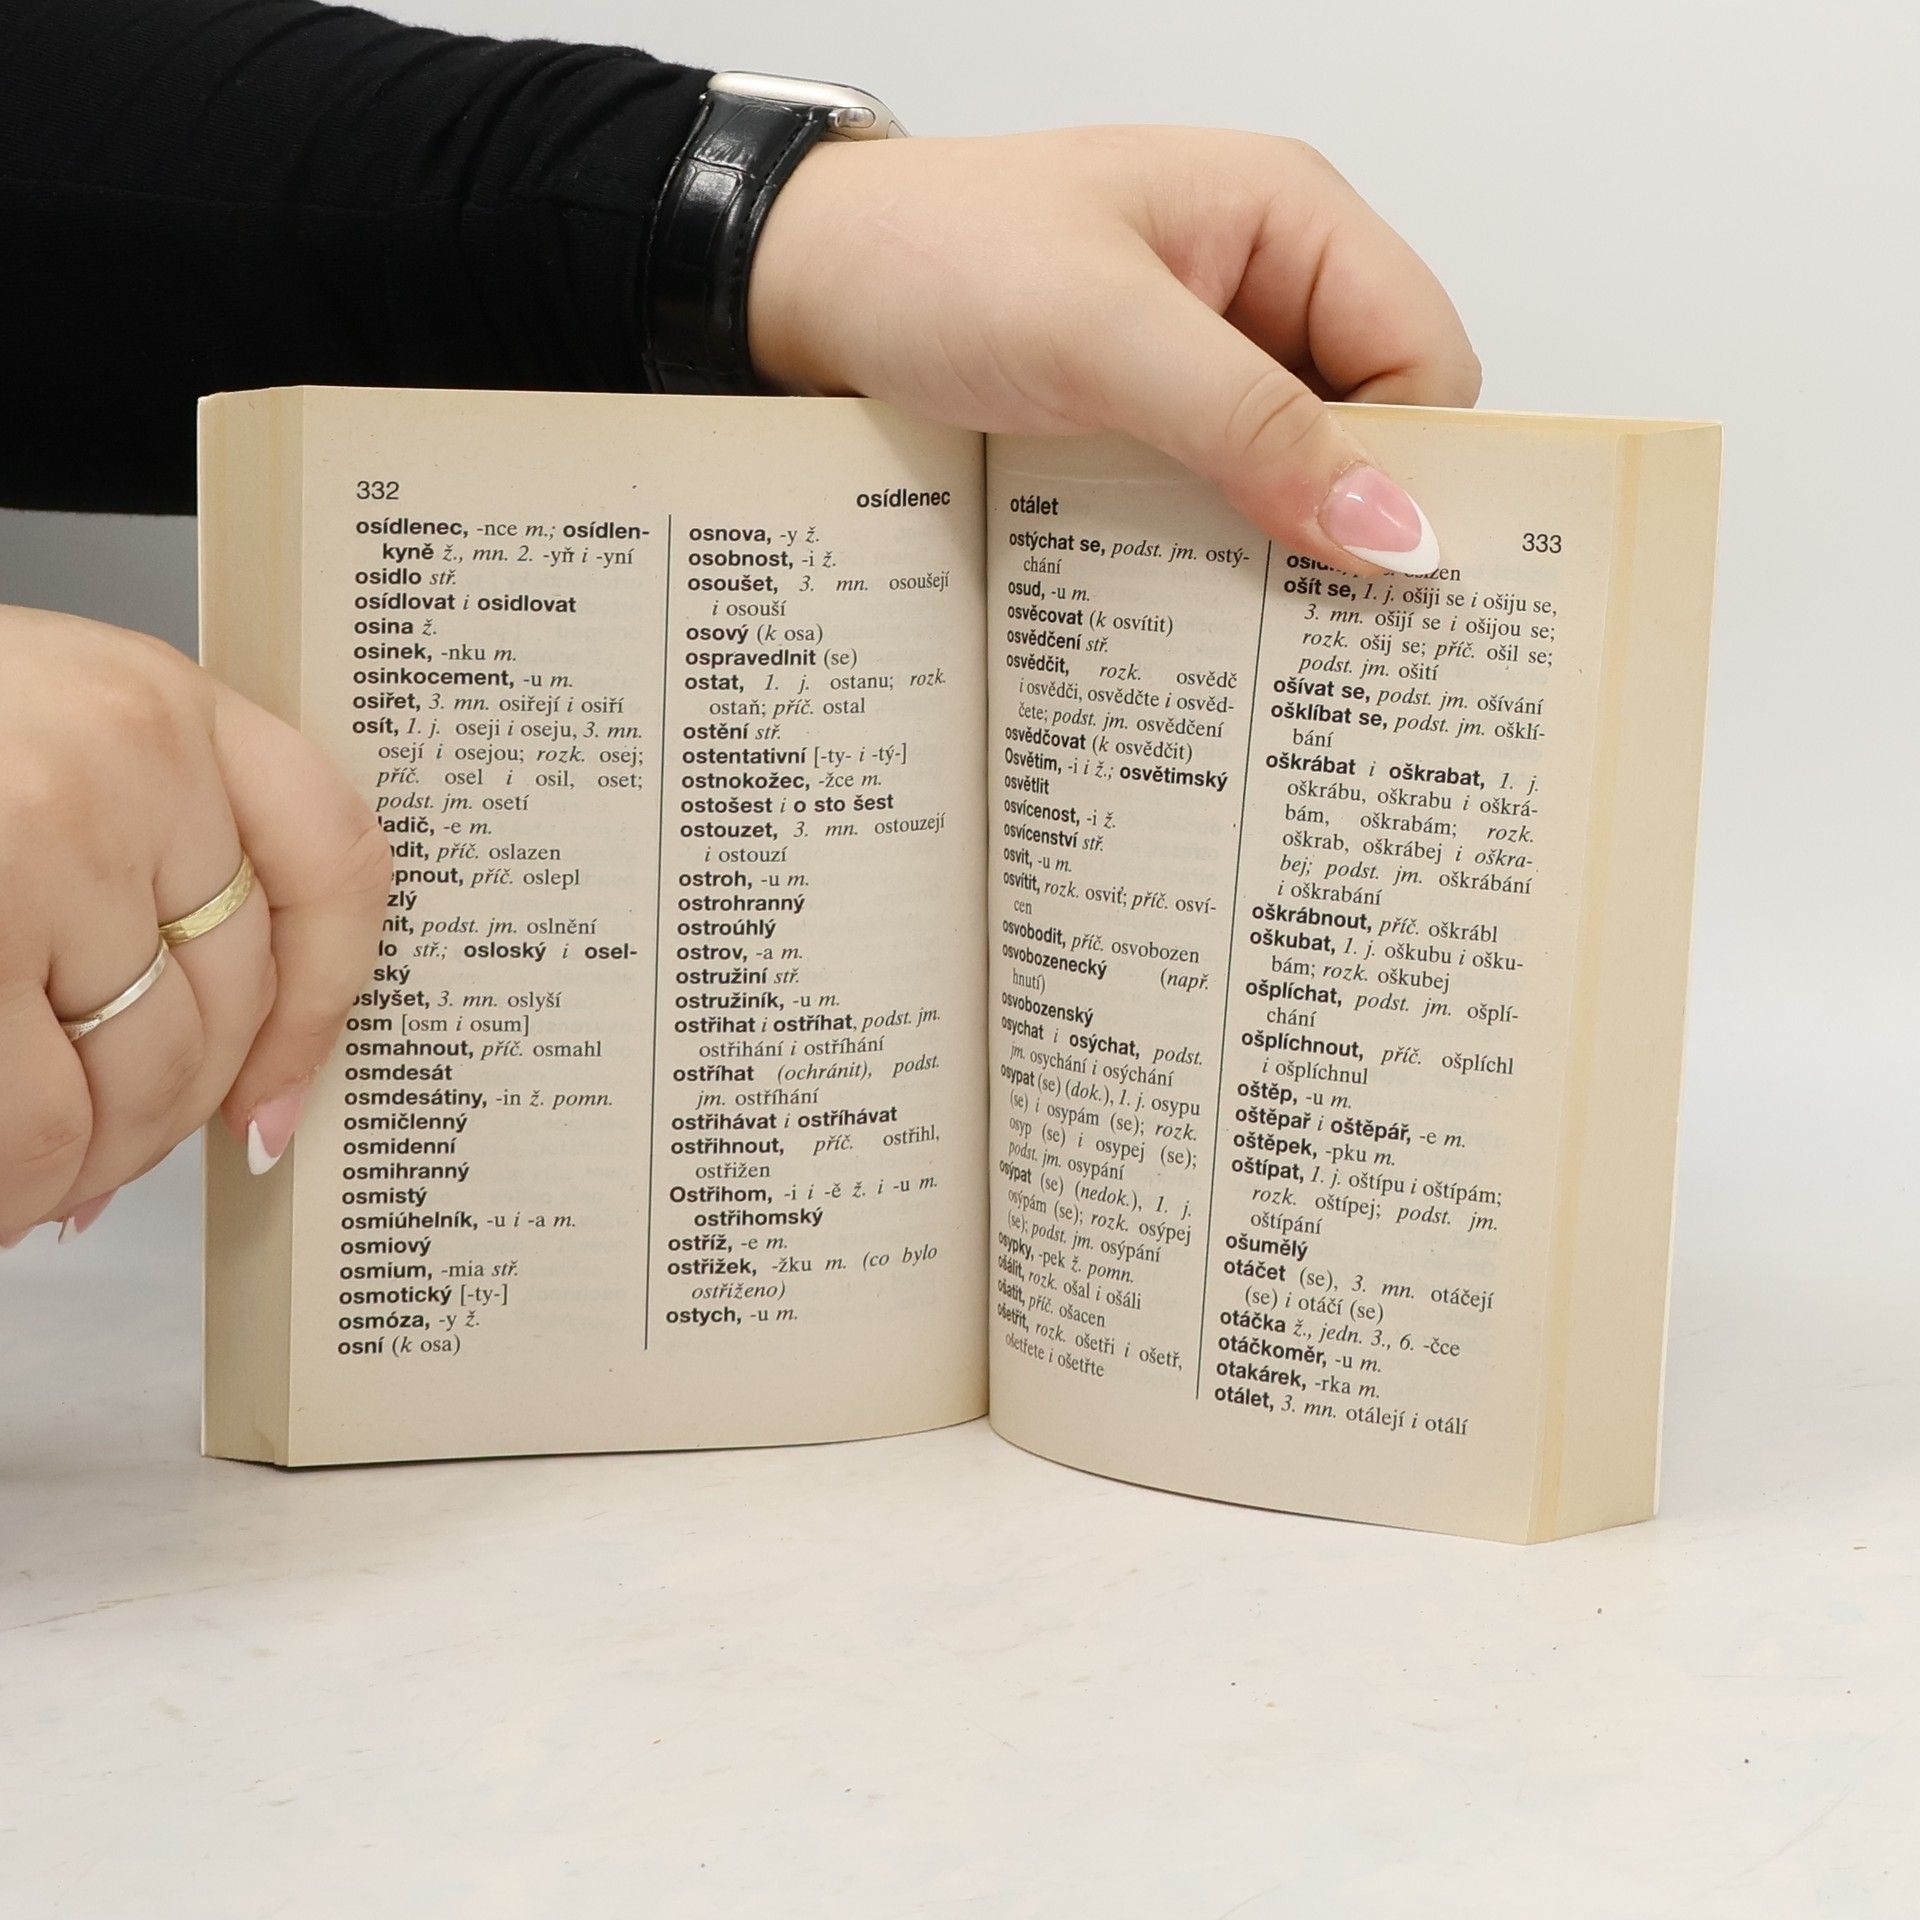 332
osídlenec
osídlenec, -nce m.; osídlen-
kyně ž., mn. 2. -yň i -yní
osidlo stř.
osídlovat i osidlovat
osina ž.
osinek, -nku m.
osinkocement, -u m.
osiřet, 3. mn. osiřejí i osiří
osít, 1. j. oseji i oseju, 3. mn.
osejí i osejou; rozk. osej;
příč. osel i osil, oset;
podst. jm. osetí
ladič, -e m.
dit, příč. oslazen
epnout, příč. oslepl
zlý
nit, podst. jm. oslnění
lo stř.; osloský i osel-
ský
oslyšet, 3. mn. oslyší
osm [osm i osum]
osmahnout, příč. osmahl
osmdesát
osmdesátiny, -in ž. pomn.
osmičlenný
osmidenní
osmihranný
osmistý
osmiúhelník, -u i -a m.
osmiový
osmium, -mia stř.
osmotický [-ty-]
osmóza, -y ž.
osní (k osa)
osnova, -y ž.
osobnost, -i ž.
osoušet, 3. mn. osoušejí
i osouší
osový (k osa)
ospravedlnit (se)
ostat, 1. j. ostanu; rozk.
ostaň; příč. ostal
ostění stř.
ostentativní [-ty- i -tý-]
ostnokožec, -žce m.
ostošest i o sto šest
ostouzet, 3. mn. ostouzejí
i ostouzí
ostroh, -u m.
ostrohranný
ostroúhlý
ostrov, -a m.
ostružiní stř.
ostružiník, -u m.
ostřihat i ostříhat, podst. jm.
ostřihání i ostříhání
ostříhat (ochránit), podst.
jm. ostříhání
ostřihávat i ostříhávat
ostřihnout, příč. ostřihl,
ostřižen
Ostřihom, -i i -ě ž. i -u m.
ostřihomský
ostříž, -e m.
ostřižek, -žku m. (co bylo
ostřiženo)
ostych, -u m.
otálet
333
ostýchat se, podst. jm. ostý-
chání
osud, -u m.
osvěcovat (k osvítit)
osvědčení stř.
osvědčit, rozk. osvědč
i osvědči, osvědčte i osvěd-
čete; podst. jm. osvědčení
osvědčovat (k osvědčit)
Osvětim, -i i ž.; osvětimský
osvětlit
osvícenost, -i ž.
osvícenství stř.
osvit, -u m.
osvítit, rozk. osviť; příč. osví-
cen
osvobodit, příč. osvobozen
osvobozenecký (např.
hnutí)
osvobozenský
osychat i osýchat, podst.
jm. osychání i osýchání
osypat (se) (dok.), 1. j. osypu
(se) i osypám (se); rozk.
osyp (se) i osypej (se);
podst. jm. osypání
osýpat (se) (nedok.), 1. j.
osýpám (se); rozk. osýpej
(se); podst. jm. osýpání
osypky, -pek ž. pomn.
ošálit, rozk. ošal i ošáli
ošatit, příč. ošacen
ošetřit, rozk. ošetři i ošetř,
ošetřete i ošetřte
ošít se, 1. j. ošiji se i ošiju se,
3. mn. ošijí se i ošijou se;
rozk. ošij se; příč. ošil se;
podst. jm. ošití
ošívat se, podst. jm. ošívání
ošklíbat se, podst. jm. ošklí-
bání
oškrábat i oškrabat, 1. j.
oškrábu, oškrabu i oškrá-
bám, oškrabám; rozk.
oškrab, oškrábej i oškra-
bej; podst. jm. oškrábání
i oškrabání
oškrábnout, příč. oškrábl
oškubat, 1. j. oškubu i ošku-
bám; rozk. oškubej
ošplíchat, podst. jm. ošplí-
chání
ošplíchnout, příč. ošplíchl
i ošplíchnul
oštěp, -u m.
oštěpař i oštěpář, -e m.
oštěpek, -pku m.
oštípat, 1. j. oštípu i oštípám;
rozk. oštípej; podst. jm.
oštípání
ošumělý
otáčet (se), 3. mn. otáčejí
(se) i otáčí (se)
otáčka ž., jedn. 3., 6. -čce
otáčkoměr, -u m.
otakárek, -rka m.
otálet, 3. mn. otálejí i otálí